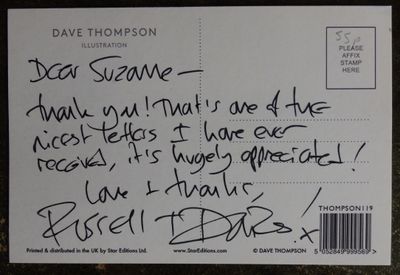 DAVE THOMPSON
ILLUSTRATION
55p
PLEASE
AFFIX
STAMP
HERE
Dear Suzanne –
Thank you! That's one of the
nicest letters I have ever
received, it's hugely appreciated!
Love & thanks,
Russell T Davies! x
THOMPSON119
5 052849 999569 >
Printed & distributed in the UK by Star Editions Ltd. www.StarEditions.com © DAVE THOMPSON